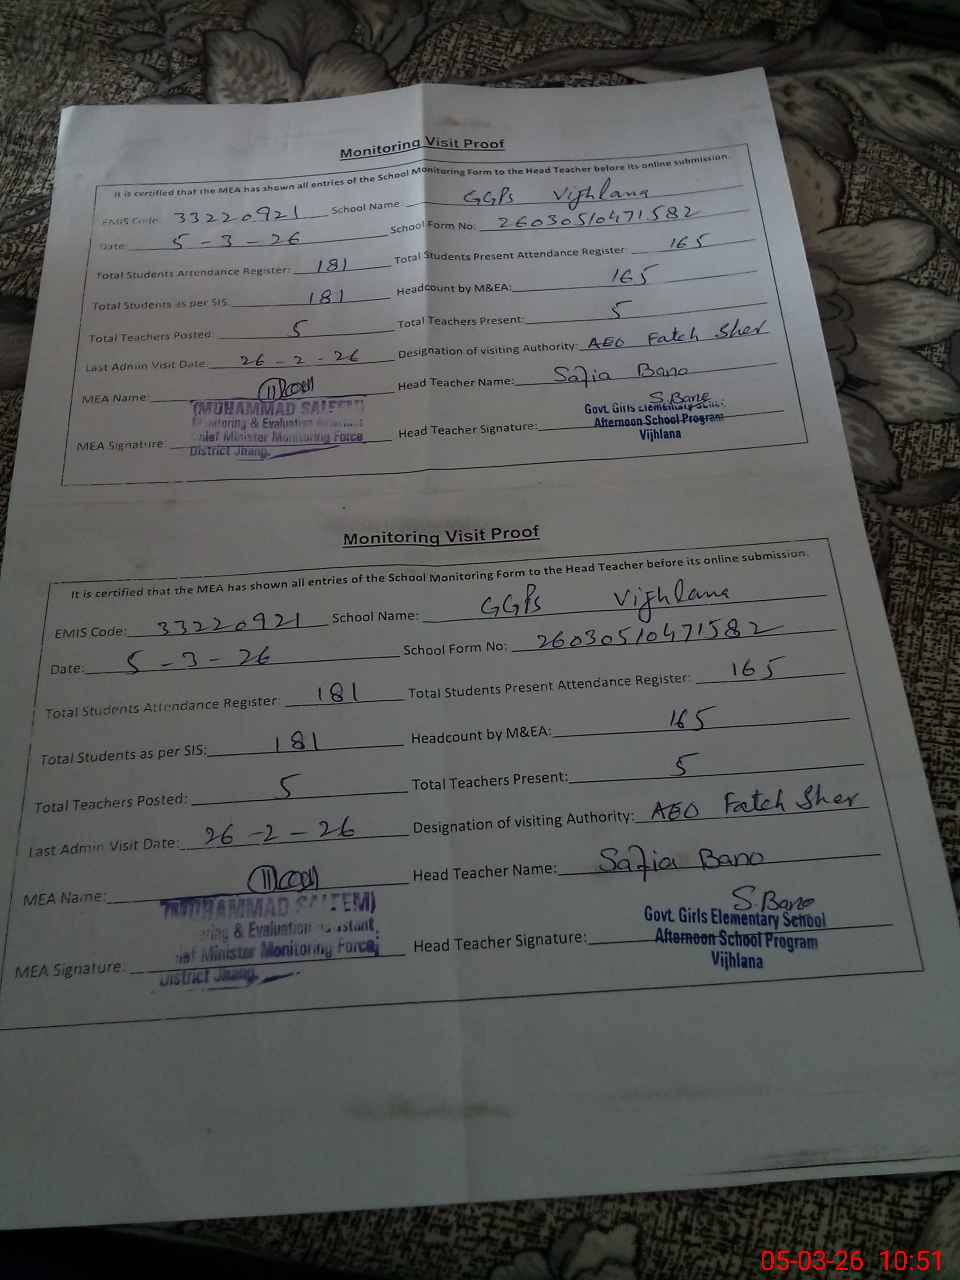 Monitoring Visit Proof
It is certified that the MEA has shown all entries of the School Monitoring Form to the Head Teacher before its online submission.
EMIS Code: 33220921 School Name: GGPS Vijhlana
Date: 5-3-26 School Form No: 26030510471582
Total Students Attendance Register: 181 Total Students Present Attendance Register: 165
Total Students as per SIS: 181 Headcount by M&EA: 165
Total Teachers Posted: 5 Total Teachers Present: 5
Last Admin Visit Date: 26-2-26 Designation of visiting Authority: AEO Fateh Sher
MEA Name: Head Teacher Name: Safia Bano
(MUHAMMAD SALEEM)
Monitoring & Evaluation Assistant
Chief Minister Monitoring Force
District Jhang.
MEA Signature: Head Teacher Signature: S.Bano
Govt. Girls Elementary School
Afternoon School Program
Vijhlana
Monitoring Visit Proof
It is certified that the MEA has shown all entries of the School Monitoring Form to the Head Teacher before its online submission.
EMIS Code: 33220921 School Name: GGPS Vijhlana
Date: 5-3-26 School Form No: 26030510471582
Total Students Attendance Register: 181 Total Students Present Attendance Register: 165
Total Students as per SIS: 181 Headcount by M&EA: 165
Total Teachers Posted: 5 Total Teachers Present: 5
Last Admin Visit Date: 26-2-26 Designation of visiting Authority: AEO Fateh Sher
MEA Name: Head Teacher Name: Safia Bano
(MUHAMMAD SALEEM)
Monitoring & Evaluation Assistant,
Chief Minister Monitoring Force,
District Jhang.
MEA Signature: Head Teacher Signature: S.Bano
Govt. Girls Elementary School
Afternoon School Program
Vijhlana
05-03-26 10:51